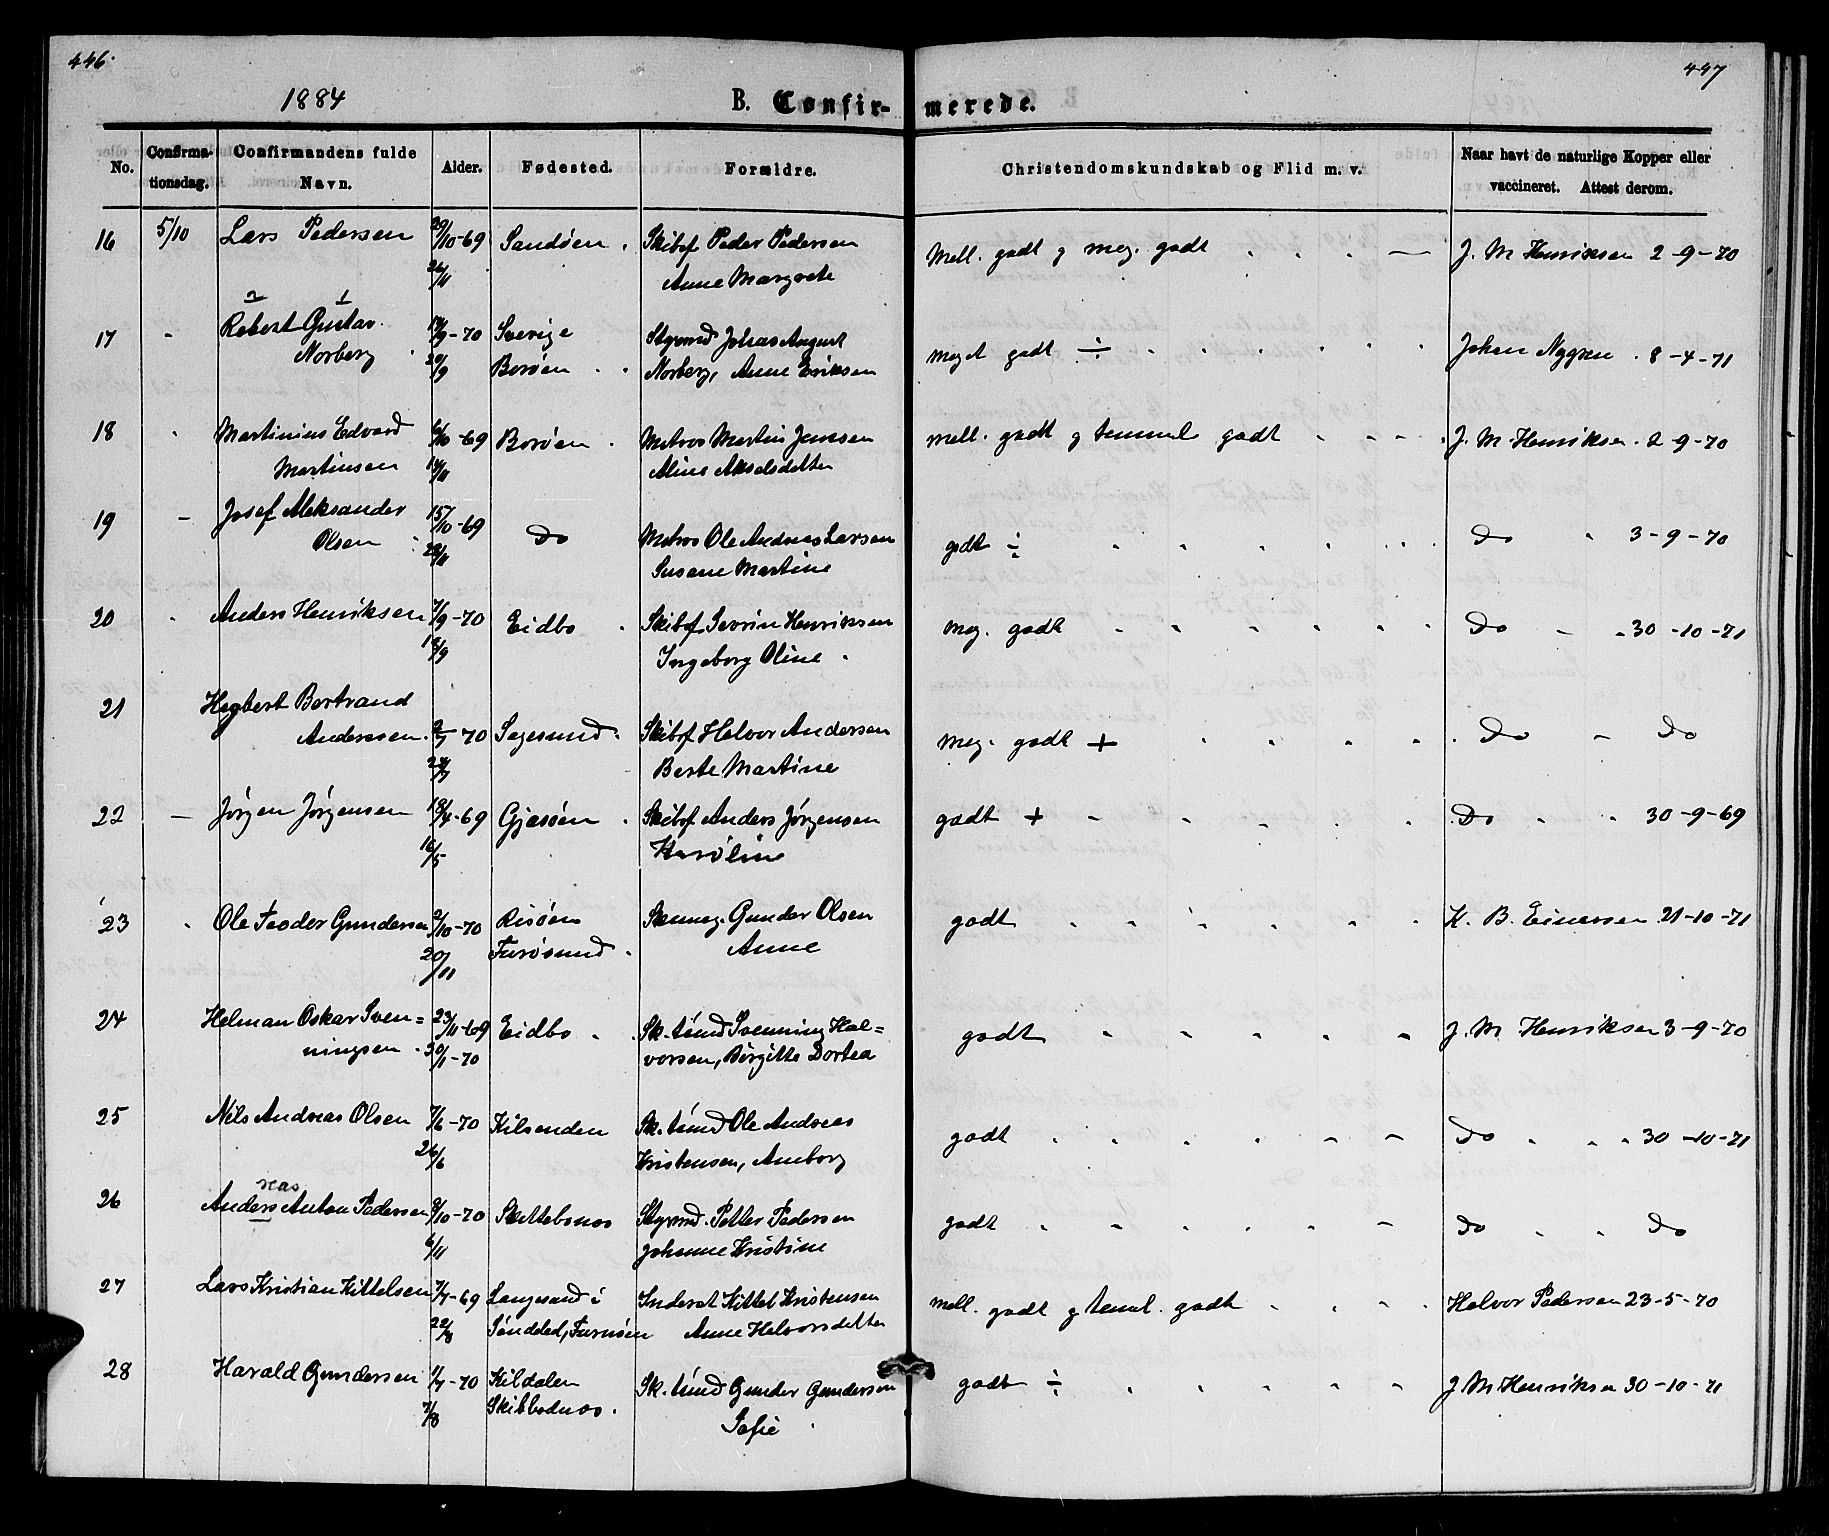 446.
447
1884
B. Confir-
merede.
No. Confirma-tionsdag. Confirmandens fulde Navn. Alder. Fødested. Forældre. Christendomskundskab og Flid m. v. Naar havt de naturlige Kopper eller vaccineret. Attest derom.
16 5/10 Lars Pedersen 29/10-69 Sandøen. Skibsf Peder Pedersen Mell. godt g meg. godt J. M Henriksen 2-9-70
26/11 Anne Margrete
2 1
17 " Robert Gustav 14/9-70 Sverige Styrmd Johas August meget godt ÷ Johan Nygren. 8-4-71
Norberg 29/9 Borøen Norberg, Anne Eriksen
18 " Martinius Edvard 6/10-69 Borøen. Matros Martin Jensen mell. godt g temmel godt J. M. Henriksen. 2-9-70
Martinsen 14/11 Aline Akselsdatter
19 - Josef Aleksander 15/10-69 Do Matros Ole Andreas Larsen godt ÷ Do " 3-9-70
Olsen 28/11 Susane Martine
20 " Anders Henriksen 7/9-70 Eidbo Skibsf Severin Henriksen meg. godt Do - 30-10-71
18/9 Ingeborg Oline
21 Hegbert Bertrand
Anderssen. 2/7-70 Sagesund Skibsf Halvor Andersen meg. godt + Do - Do
24/7 Berte Martine
22 - Jørgen Jørgensen 18/4-69 Gjæsøen Skibsf Anders Jørgensen godt + Do 30-9-69
16/5 Karoline
23 " Ole Teodor Gundersen 2/10-70 Risøen Gunder Olsen godt K. B. Einersen 21-10-71
20/11 Furøsund Anne
24 Helman Oskar Sven= 23/11-69 Eidbo Sk. tømd Svenning Hal= godt J. M. Henriksen 3-9-70
ningsen. 30/1-70 vorsen, Birgitte Dortea
25 Nils Andreas Olsen 7/6-70 Kilsenden Sk. tømd Ole Andreas godt Do " 30-10-71
26/6 Kristensen, Amborg
reas
26 Anders Anton Pedersen 9/10-70 Skottebonæs Styrmd. Petter Pedersen godt Do " Do
6/11 Johanne Kristine
27 Lars Kristian Kittelsen 7/7-69 Langesand i Inderst Kittel Kristensen mell. godt g temel. godt Halvor Pedersen 23-5-70
22/8 Søndeled, Furuøen Anne Halvorsdatter
28 Harald Gundersen 1/7-70 Kildalen Sk. tømd Gunder Gundersen godt ÷ J M Henriksen 30-10-71
7/8 Skibbodnæs. Sofie